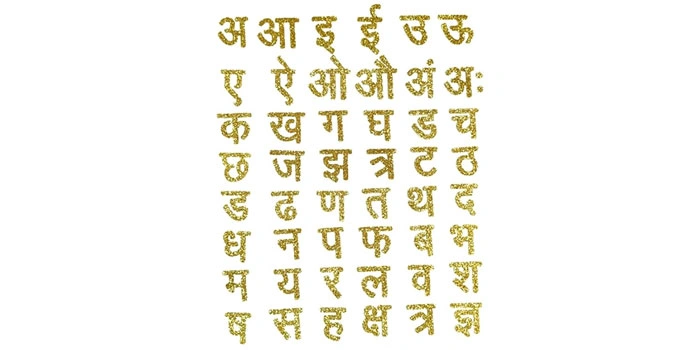 अ आ इ ई उ ऊ
ए ऐ ओ औ अं अः
क ख ग घ ड च
छ ज झ त्र ट ठ
ड ढ ण त थ द
ध न प फ ब भ
म य र ल व श
ष स ह क्ष त्र ज्ञ